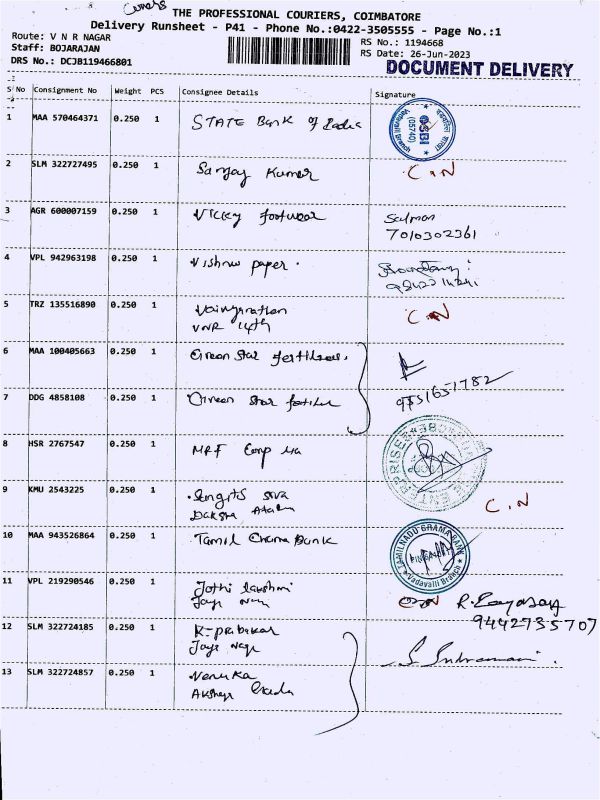 Covers
THE PROFESSIONAL COURIERS, COIMBATORE
Delivery Runsheet - P41 - Phone No.:0422-3505555 - Page No.:1
Route: V N R NAGAR
Staff: BOJARAJAN
DRS No.: DCJB119466801
RS No.: 1194668
RS Date: 26-Jun-2023
DOCUMENT DELIVERY
S No Consignment No Weight PCS Consignee Details Signature
1 MAA 570464371 0.250 1 STATE Bank of India
SBI
(05740)
2 SLM 322727495 0.250 1 Sanjay Kumar C.N
3 AGR 600007159 0.250 1 Vicky footwear Salman
7010302361
4 VPL 942963198 0.250 1 Vishnu paper.
5 TRZ 135516890 0.250 1 C.N
VNR 14th
6 MAA 100405663 0.250 1 Green Star fertilizers.
7 DDG 4858108 0.250 1 Green Star 9751651782
8 HSR 2767547 0.250 1 MRF Corp
ENTERPRISES
9 KMU 2543225 0.250 1 Siva C.N
Daksha
10 MAA 943526864 0.250 1 Tamil Grama Bank
TAMILNADU GRAMA BANK
Vadavalli Branch
11 VPL 219290546 0.250 1 Jothi Lakshmi
Jaya Nagar
9442735707
12 SLM 322724185 0.250 1 K-prabakar
Jaya Naga
13 SLM 322724857 0.250 1 Venuka
Akshaya